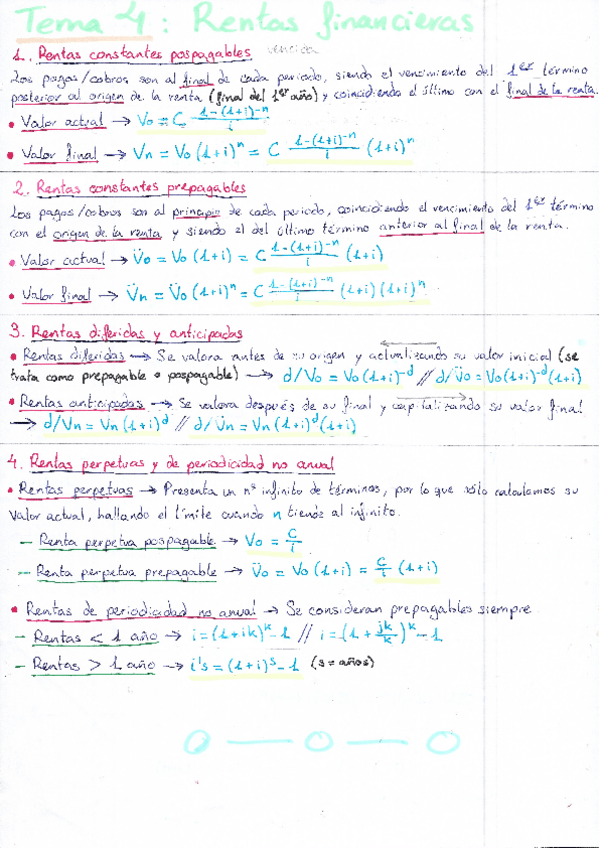 Tema 4: Rentas financieras
1. Rentas constantes pospagables vencida
Los pagos/cobros son al final de cada periodo, siendo el vencimiento del 1er término
posterior al origen de la renta (final del 1er año) y coincidiendo el último con el final de la renta.
• Valor actual → Vo = C 1-(1+i)^-n / i
• Valor final → Vn = Vo (1+i)^n = C 1-(1+i)^-n / i (1+i)^n
2. Rentas constantes prepagables
Los pagos/cobros son al principio de cada periodo, coincidiendo el vencimiento del 1er término
con el origen de la renta y siendo el del último término anterior al final de la renta.
• Valor actual → V̈o = Vo (1+i) = C 1-(1+i)^-n / i (1+i)
• Valor final → V̈n = V̈o (1+i)^n = C 1-(1+i)^-n / i (1+i) (1+i)^n
3. Rentas diferidas y anticipadas
• Rentas diferidas → Se valora antes de su origen y actualizando su valor inicial (se
trata como prepagable o pospagable) → d/Vo = Vo(1+i)^-d // d/V̈o = Vo(1+i)^-d (1+i)
• Rentas anticipadas → Se valora después de su final y capitalizando su valor final
→ d/Vn = Vn(1+i)^d // d/V̈n = Vn(1+i)^d (1+i)
4. Rentas perpetuas y de periodicidad no anual
• Rentas perpetuas → Presenta un nº infinito de términos, por lo que sólo calculamos su
Valor actual, hallando el límite cuando n tiende al infinito.
– Renta perpetua pospagable → Vo = C/i
– Renta perpetua prepagable → V̈o = Vo (1+i) = C/i (1+i)
• Rentas de periodicidad no anual → Se consideran prepagables siempre
– Rentas < 1 año → i = (1+ik)^k - 1 // i = (1 + jk/k)^k - 1
– Rentas > 1 año → i's = (1+i)^s - 1 (s = años)